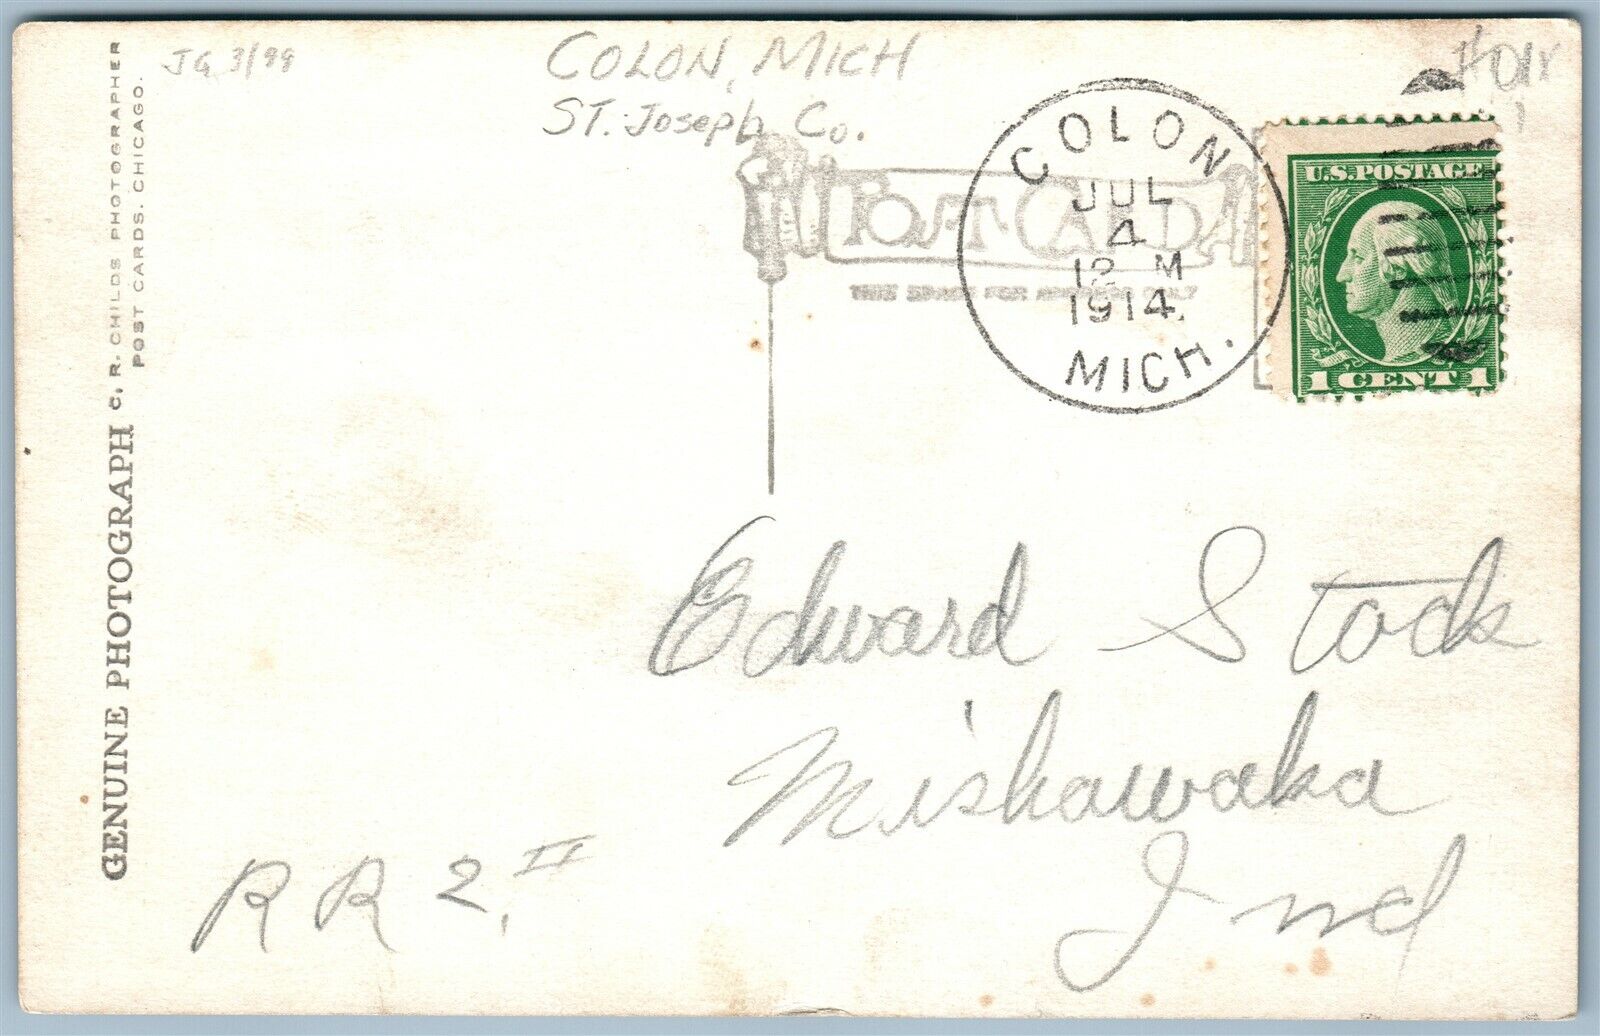 JG 3/99
COLON, MICH
ST. Joseph Co.
COLON
JUL
4
12 M
1914.
MICH.
U.S. POSTAGE
1 CENT 1
POST CARD
THIS SPACE FOR ONLY
GENUINE PHOTOGRAPH C. R. CHILDS PHOTOGRAPHER
POST CARDS. CHICAGO.
Edward Stock
Mishawaka
Ind
R R 2. II